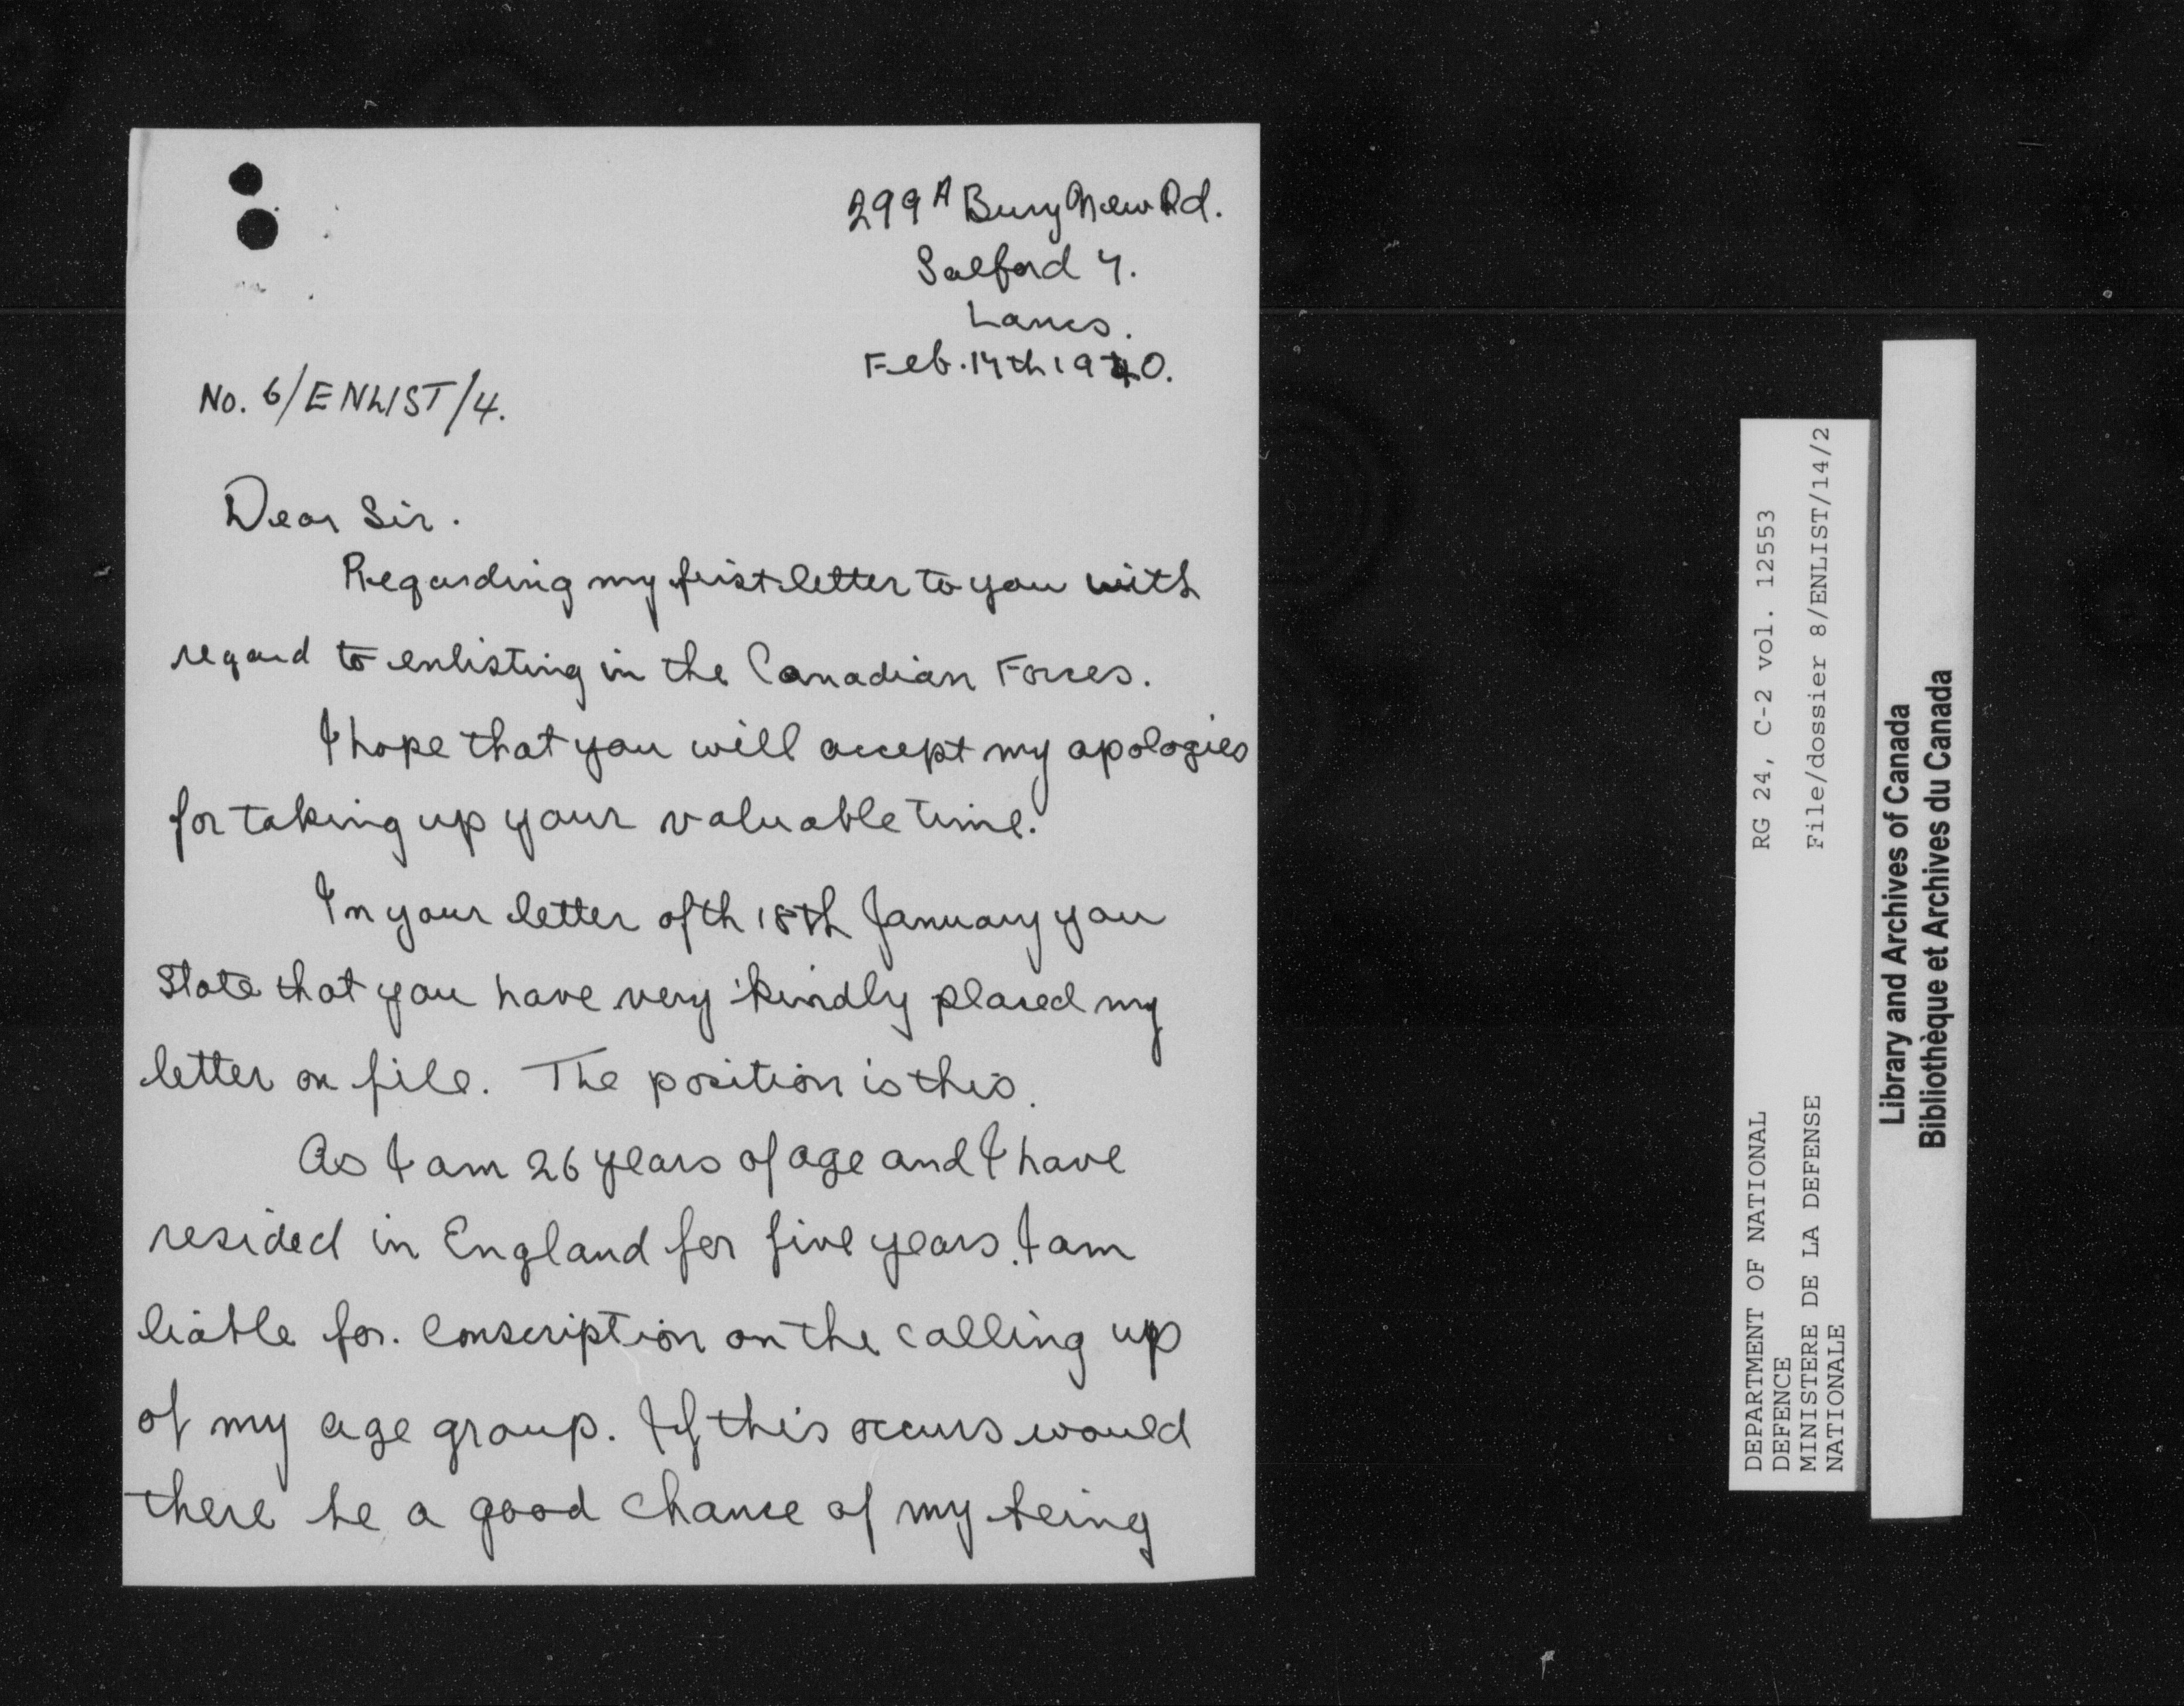 299A Bury New Rd.
Salford 7.
Lancs.
Feb. 17th 1940.
No. 6/ENLIST/4.
Dear Sir.
Regarding my first letter to you with
regard to enlisting in the Canadian Forces.
I hope that you will accept my apologies
for taking up your valuable time.
In your letter of th 18th January you
State that you have very kindly placed my
letter on file. The position is this.
As I am 26 years of age and I have
resided in England for five years. I am
liable for. conscription on the calling up
of my age group. If this occurs would
there be a good chance of my being
DEPARTMENT OF NATIONAL
DEFENCE
MINISTERE DE LA DEFENSE
NATIONALE
RG 24, C-2 vol. 12553
File/dossier 8/ENLIST/14/2
Library and Archives of Canada
Bibliothèque et Archives du Canada